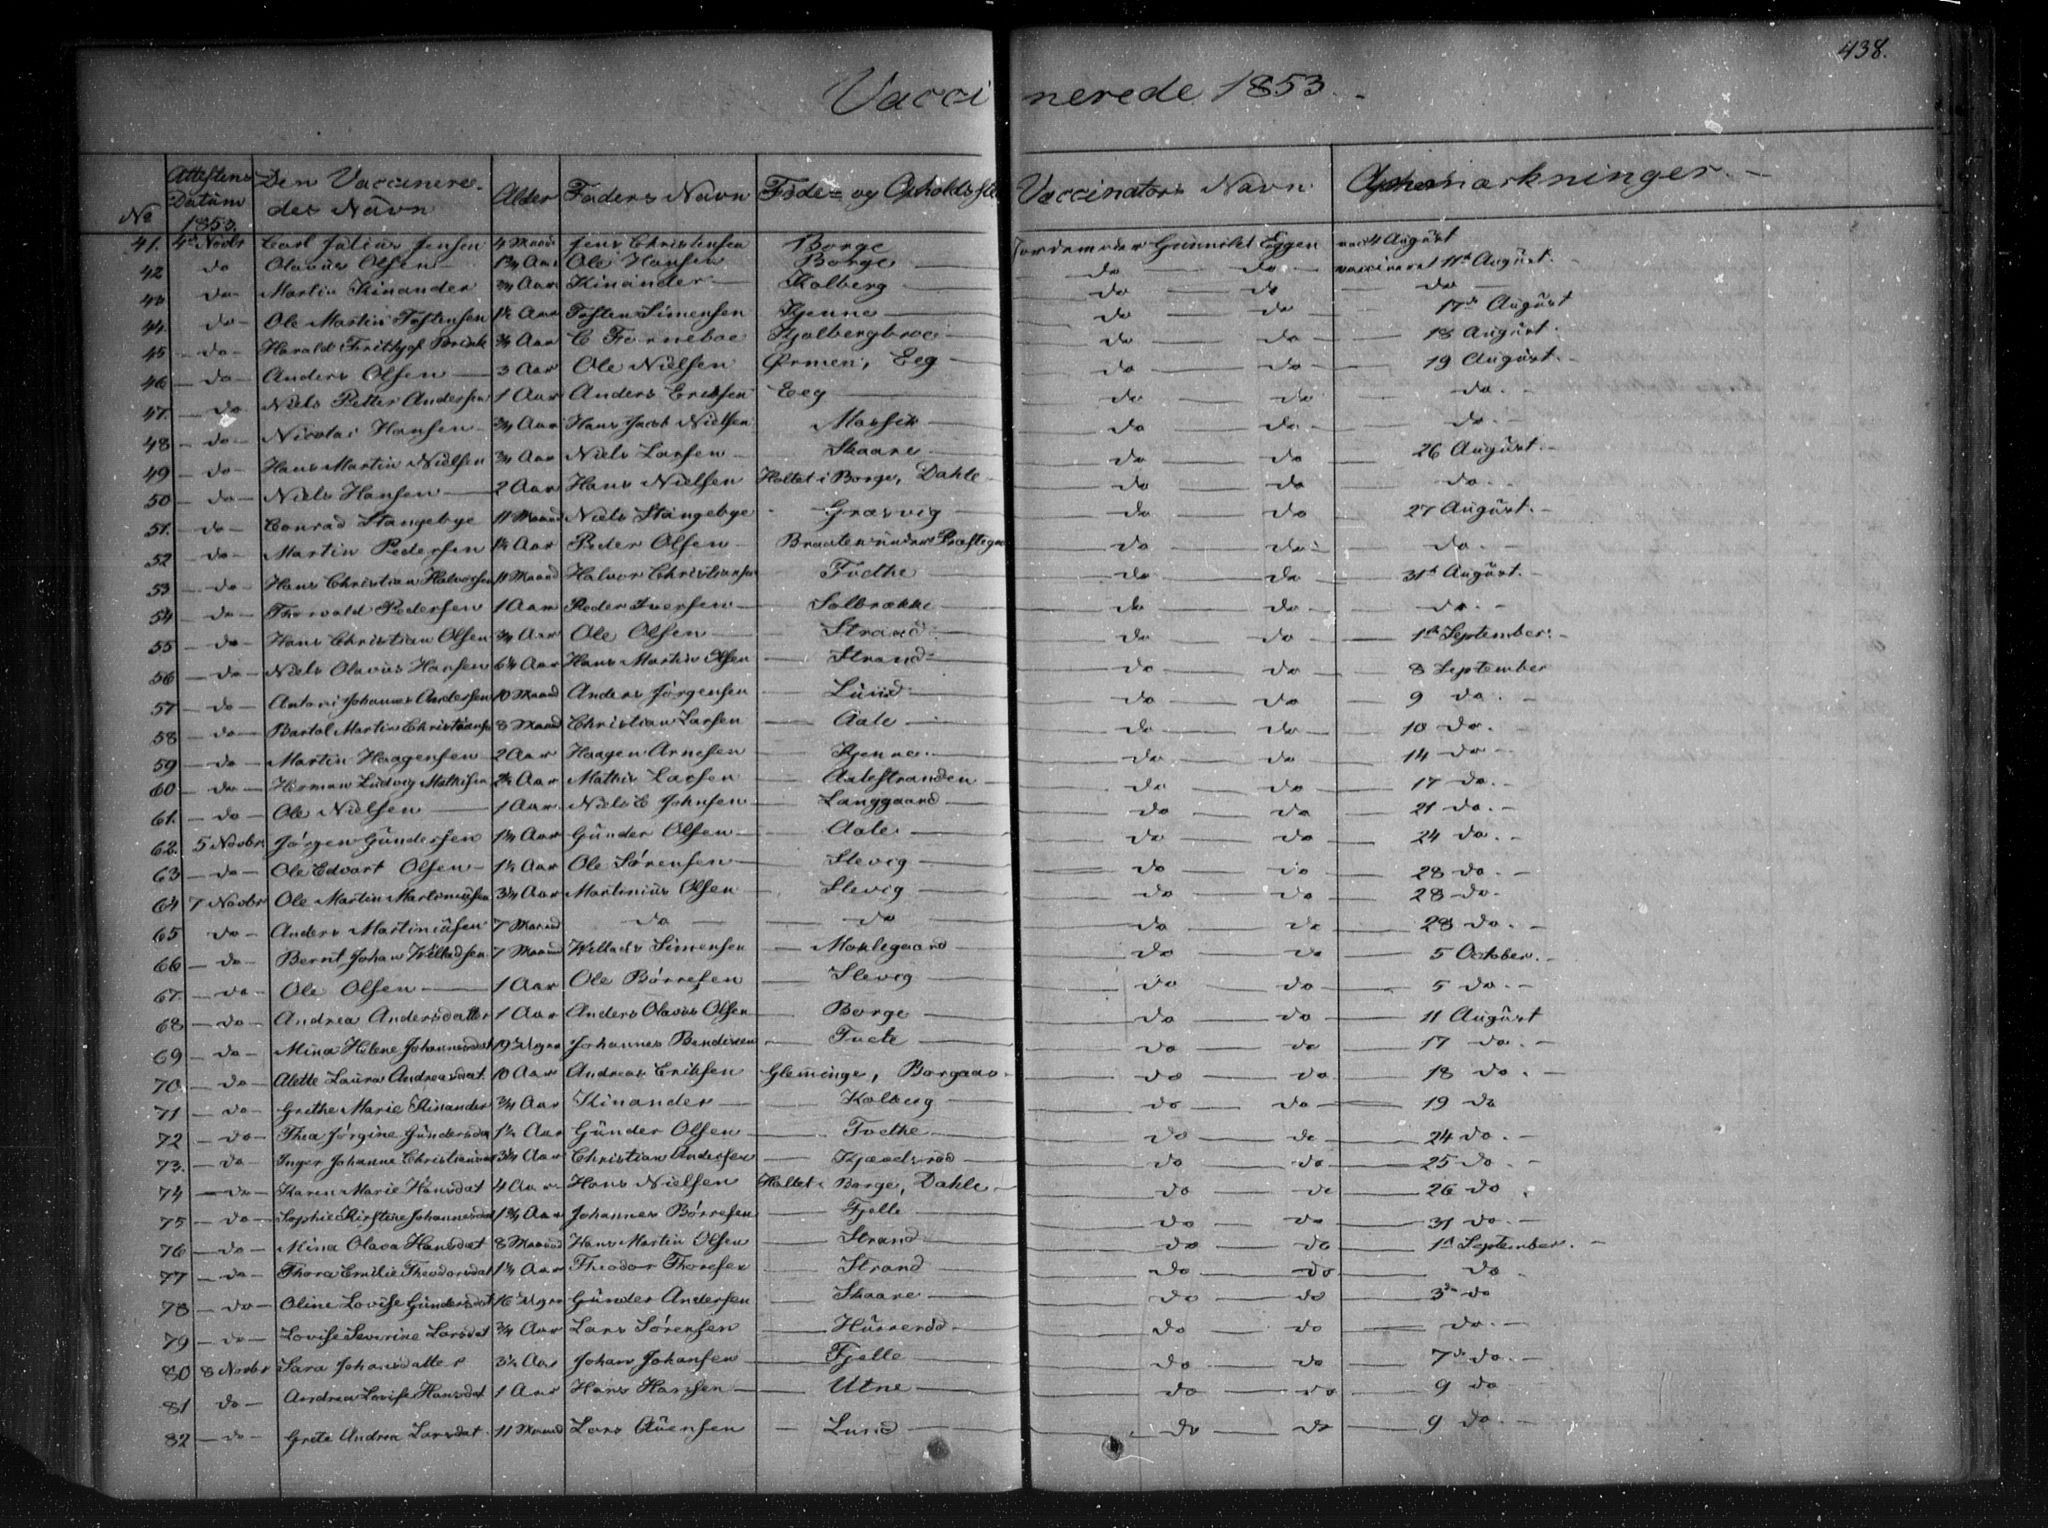 438.
Vaccinerede 1853.
No Attestens Datum 1853. Den Vaccineredes Navn Alder Faders Navn Føde- og Opholdsste Vaccinators Navn Anmærkninger.
41. 4d Novbr Carl Julius Jensen 4 Maan Jens Christensen Borge Jordemoder Gunnild Eggen vacc 4 August
42 do Olavus Olsen 1¾ Aar Ole Hansen Borge do do vaccineret 11t August.
43 do Martin Kinander ¾ Aar Kinander Kolberg do do do
44. do Ole Martin Tostensen 1½ Aar Tosten Simensen Kjenne do do 17de August
45 do Harald Fritzhof Brink ¾ Aar C Forneboe Kjolbergbroe do do 18 August.
46 do Anders Olsen 3 Aar Ole Nielsen Ørmen, Eeg do do 19 August.
47. do Niels Petter Andersen 1 Aar Anders Eriksen Eeg do do do.
48 do Nicolai Hansen ¾ Aar Hans Jacob Nielsen Mossik do do do.
49 do Hans Martin Nielsen ¾ Aar Niels Larsen Skaare do do 26 August.
50 do Niels Hansen 2 Aar Hans Nielsen Holtet i Borge, Dahle do do do.
51. do Conrad Stangebye 11 Maaned Niels Stangebye Græsvig do do 27 August.
52 do Martin Pedersen 1½ Aar Peder Olsen Braaten under Præstegr do do do.
53 do Hans Christian Halvorsen 11 Maaned Halvor Christiansen Todthe do do 31t August.
54 do Thorvald Pedersen 1 Aar Peder Iversen Solbrække do do do.
55 do Hans Christian Olsen ¾ Aar Ole Olsen Strand do do 1ste September.
56 do Niels Olavus Hansen 6½ Aar Hans Martin Olsen Strand do do 8 September
57 do Antoni Johannes Andersen 10 Maaned Anders Jørgensen Lund do do 9 do.
58 do Bartol Martin Christiansen 8 Maaned Christian Larsen Aale do do 10 do.
59 do Martin Haagensen 2 Aar Haagen Arnesen Kjenne do do 14 do
60 do Herman Ludvig Mathisen 2½ Aar Mathis Larsen Aalestranden do do 17 do.
61. do Ole Nielsen 1 Aar Niels C Johnsen Langgaard do do 21 do.
62. 5 Novbr. Jørgen Gundersen 1¾ Aar Gunder Olsen Aale do do 24 do.
63 do Ole Edvart Olsen 1½ Aar Ole Sørensen Slevig do do 28 do.
64 7 Novbr Ole Martin Martinusen 3¾ Aar Martinius Olsen Slevig do do 28 do.
65 do Anders Martinusen 7 Maaned do do do do 28 do.
66 do Bernt Johan Willadsen 7 Maaned Willads Simensen Moklegaard do do 5 October.
67. do Ole Olsen 1 Aar Ole Børresen Slevig do do 5 do.
68 do Andrea Andersdatter 1 Aar Anders Olavus Olsen Borge do do 11 August
69 do Mina Helene Johannesdat 19 Uger Johannes Bendixen Tvete do do 17 do.
70. do Alette Laura Andreasdat. 10 Aar Andreas Eriksen Glemminge, Borgaas do do 18 do.
71 do Grethe Marie Kinander ¾ Aar Kinander Kolberg do do 19 do
72 do Thea Jørgine Gundersdat 1½ Aar Gunder Olsen Todthe do do 24 do.
73. do Inger Johanne Christiansdat 3¾ Aar Christian Andersen Kjændsrød do do 25 do.
74 do Karen Marie Hansdat 4 Aar Hans Nielsen Holtet i Borge, Dahle do do 26 do.
75 do Sophie Kirstine Johannesdat 1¾ Aar Johannes Børresen Fjelle do do 31 do.
76 do Mina Olava Hansdat 8 Maaned Hans Martin Olsen Strand do do 1st September.
77 do Thora Emilie Theodorsdat 1½ Aar Theodor Thoresen Strand do do do
78 do Oline Lovise Gundersdat 16 Uger Gunder Andersen Skaare do do 3de do
79 do Lovise Severine Larsdat ¾ Aar Lars Sørensen Hunnerød do do do.
80 8 Novbr Sara Johansdatter 3½ Aar Johan Johansen Fjelle do do 7de do.
81 do Andrea Lovise Hansdat 1 Aar Hans Hansen Utne do do 9 do
82 do Grete Andrea Larsdat. 11 Maaned Lars Auensen Lund do do 9 do.